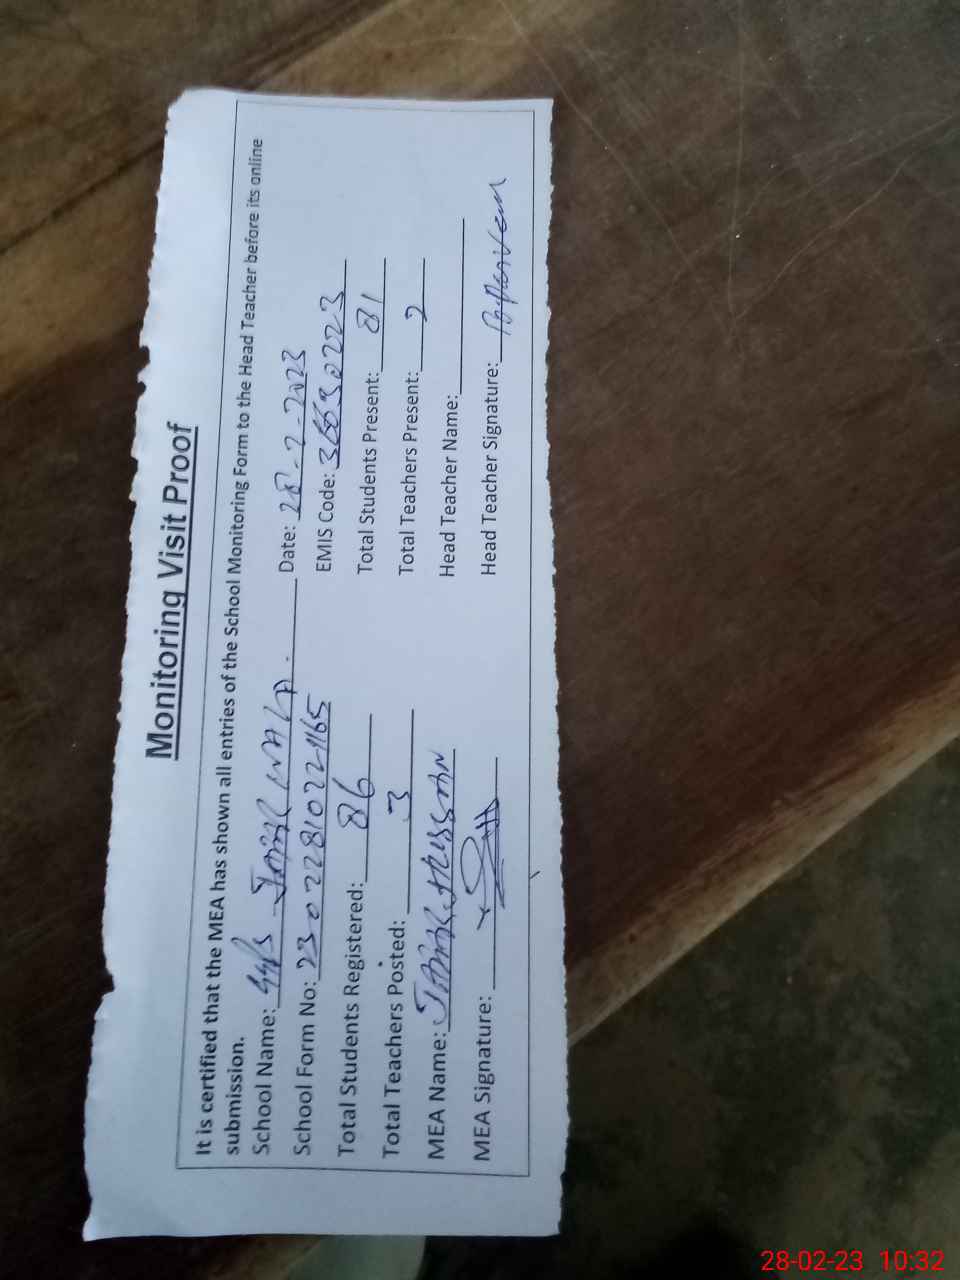 Monitoring Visit Proof
It is certified that the MEA has shown all entries of the School Monitoring Form to the Head Teacher before its online
submission.
School Name: Date: 28-2-2023
School Form No: EMIS Code: 36630223
Total Students Registered: 86 Total Students Present: 81
Total Teachers Posted: 3 Total Teachers Present: 2
MEA Name: Head Teacher Name:
MEA Signature: Head Teacher Signature:
28-02-23 10:32